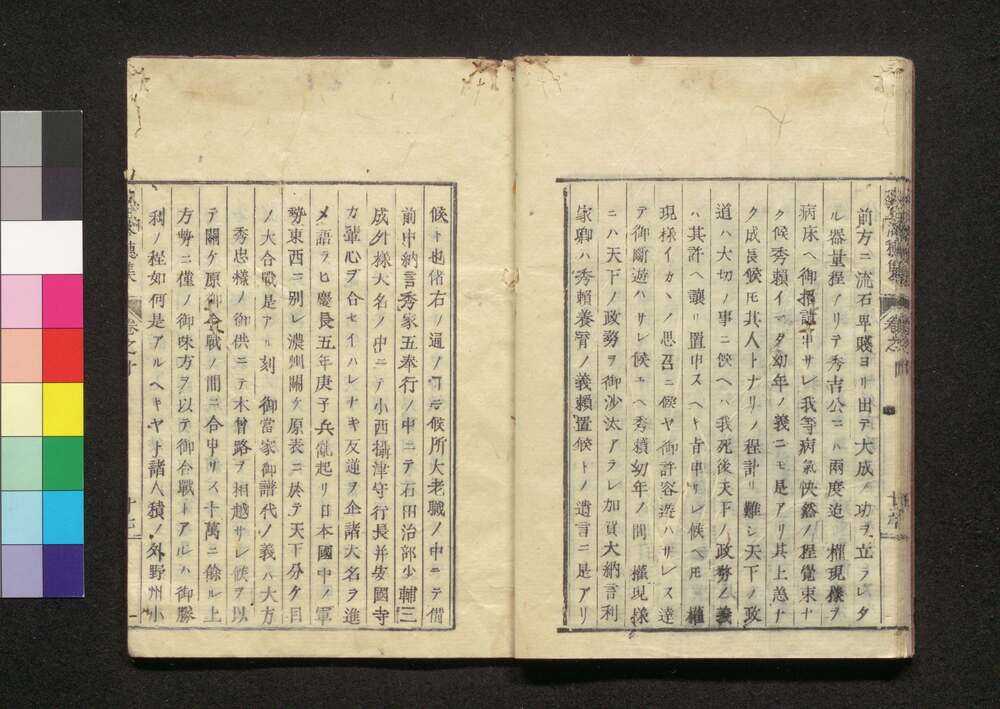 前方ニ流石卑賤ヨリ出テ大成ノ功ヲ立ラレタ
ル器量程ノリテ秀吉公ニハ兩度迄 權現樣ヲ
病床ヘ御招請申サレ我等病氣快然ノ程覺束ナ
ク候秀頼イマタ幼年ノ義ニモ是アリ其上恙ナ
ク成長候モ其人トナリノ程計リ難シ天下ノ政
道ハ大切ノ事ニ候ヘハ我死後天下ノ政務ノ義
ハ其許ヘ讓リ置申スヘキ旨申サレ候ヘモ 權
現樣イカヽノ思召ニ候ヤ御許容遊ハサレス達
テ御斷遊ハサレ候ユヘ秀頼幼年ノ間 權現樣
ニハ天下ノ政務ヲ御沙汰アラレ加賀大納言利
家卿ハ秀頼養育ノ義頼置候トノ遺言ニ是アリ
候ト也偖右ノ通ノ ニ候所大老職ノ中ニテ備
前中納言秀家五奉行ノ中ニテ石田治部少輔三
成外樣大名ノ中ニテ小西攝津守行長并安國寺
カ輩心ヲ合セイハレナキ反逆ヲ企諸大名ヲ進
メ語ラヒ慶長五年庚子兵亂起リ日本國中ノ軍
勢東西ニ別レ濃州關ケ原表ニ於テ天下分ケ目
ノ大合戰是アル刻 御當家御譜代ノ義ハ大方
秀忠樣ノ御供ニテ木曾路ヲ相越サレ候ヲ以
テ關ケ原御合戰ノ間ニ合申サス十萬ニ餘ル上
方勢ニ僅ノ御味方ヲ以テ御合戰トアルハ御勝
利ノ程如何是アルヘキヤト諸人積ノ外野州小
卷之十